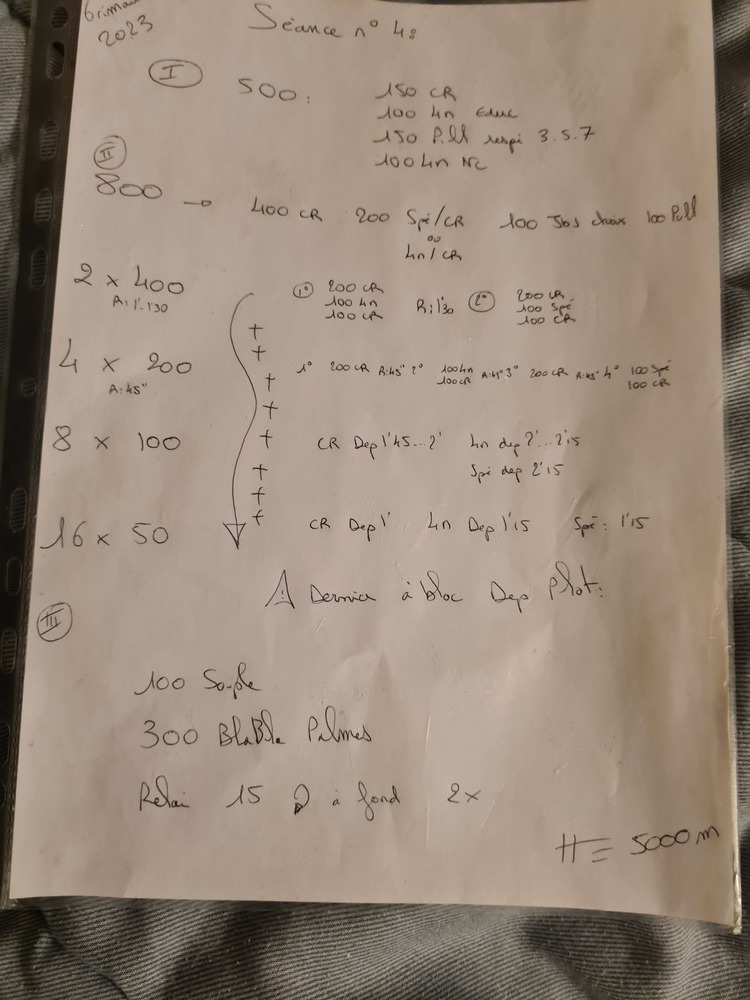 2023
Séance n° 4:
I
500:
150 CR
100 4n Educ
150 Pull respi 3.5.7
100 4n NC
II
800 → 400 CR 200 Spé/CR 100 Jbs choix 100 Pull
ou
4n/CR
2 x 400
R: 1'-1'30
1° 200 CR
100 4n
100 CR
R: 1'30
2° 200 CR
100 Spé
100 CR
4 x 200
R: 45"
1° 200 CR R:45" 2° 100 4n R:45" 3° 200 CR R:45" 4° 100 Spé
100 CR 100 CR
8 x 100
CR Dep 1'45...2' 4n dep 2'...2'15
Spé dep 2'15
16 x 50
CR Dep 1' 4n Dep 1'15 Spé: 1'15
+ + + + + + + +
⚠ Dernier à bloc Dep Plot:
III
100 Souple
300 BlaBla Palmes
Relai 15 à fond 2x
= 5000 m